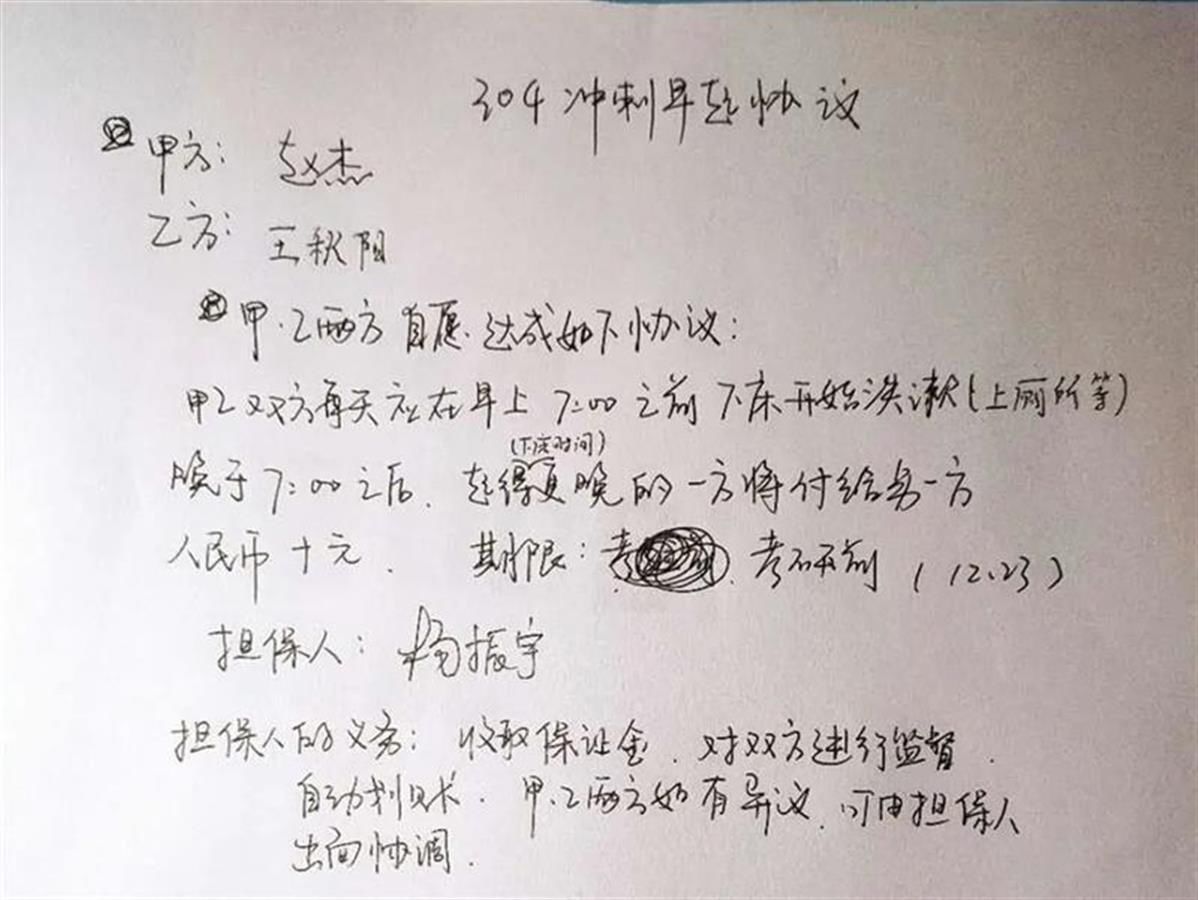 304冲刺早起协议
甲方：赵杰
乙方：王秋阳
甲、乙两方自愿达成如下协议：
甲乙双方每天应在早上7:00之前下床开始洗漱(上厕所等)
(下床时间)
晚于7:00之后、起得更晚的一方将付给另一方
人民币十元. 期限： 考研前 (12.23)
担保人：杨振宇
担保人的义务：收取保证金、对双方进行监督.
自动划账. 甲、乙两方如有异议、可由担保人
出面协调.